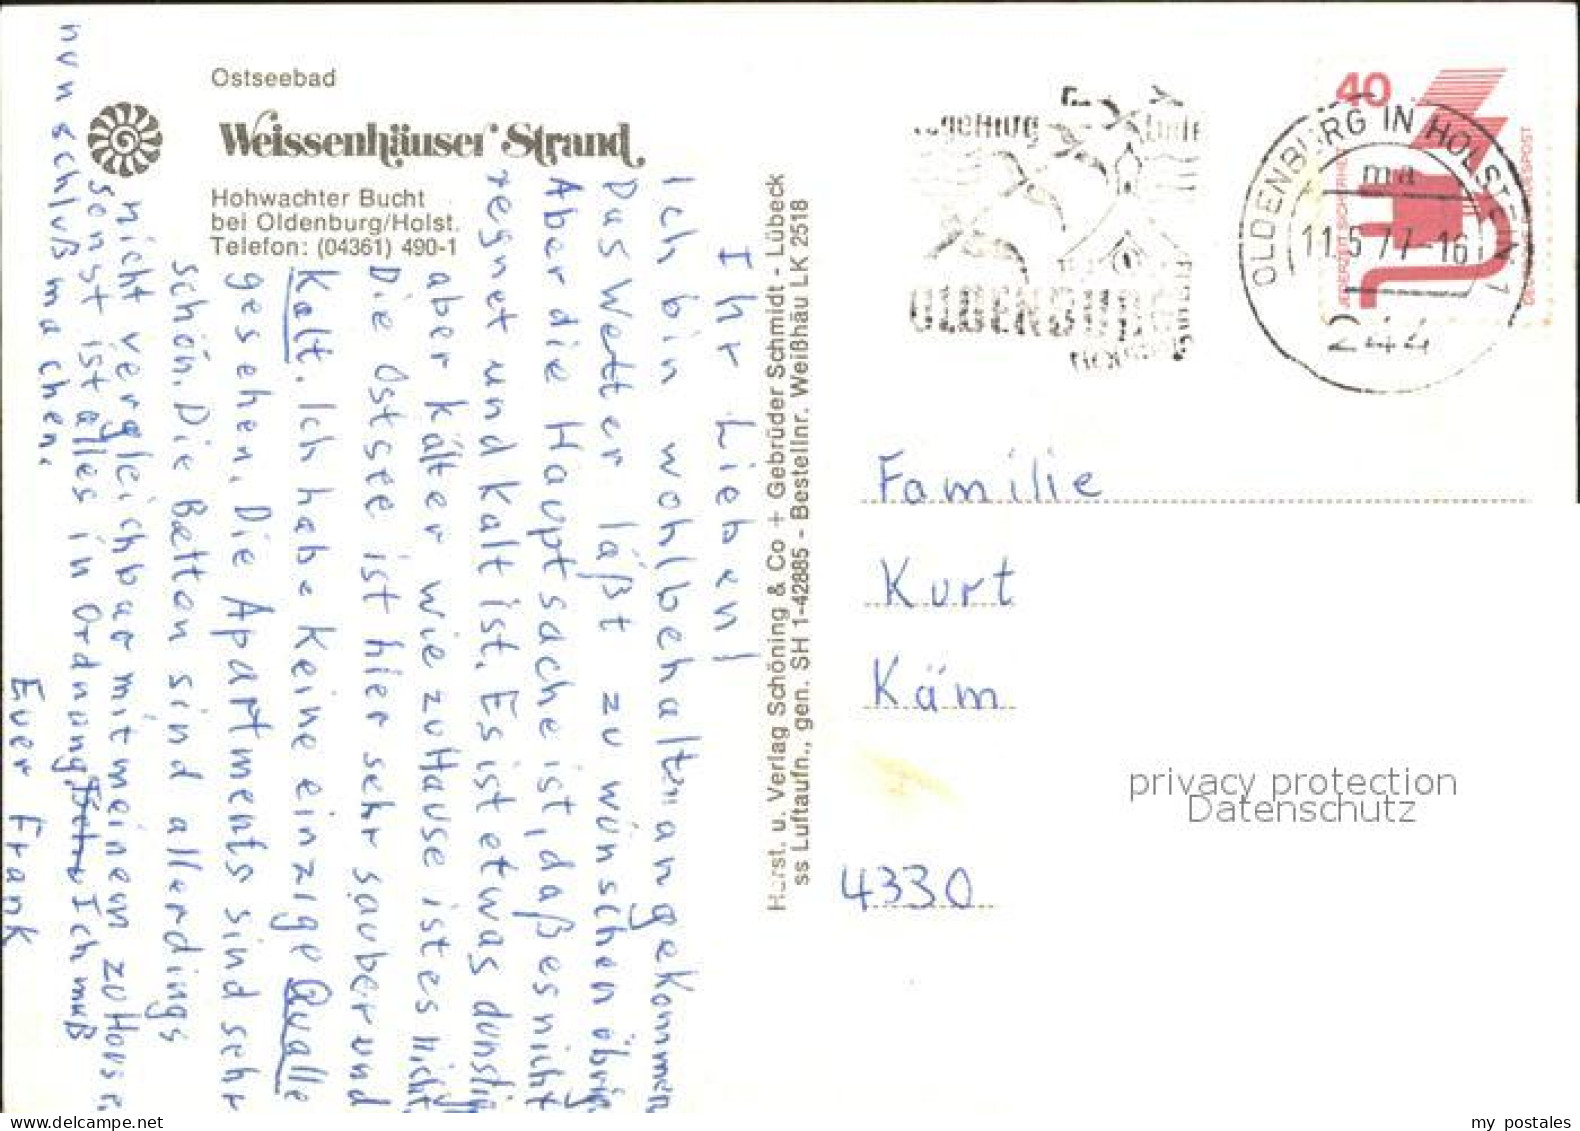 Ostseebad
Weissenhäuser Strand
Hohwachter Bucht
bei Oldenburg/Holst.
Telefon: (04361) 490-1
Ihr Lieben!
Ich bin wohlbehalten angekommen
Das Wetter läßt zu wünschen übrig
Aber die Hauptsache ist, daß es nicht
regnet und kalt ist. Es ist etwas dunstig
aber kälter wie zuHause ist es nicht.
Die Ostsee ist hier sehr sauber und
Kalt. Ich habe keine einzige Qualle
gesehen. Die Apartments sind sehr
schön. Die Betten sind allerdings
nicht vergleichbar mit meinem zuHause.
sonst ist alles in Ordnung. Ich muß
nun schluß machen.
Euer Frank
Horst. u. Verlag Schöning & Co + Gebrüder Schmidt - Lübeck
ss Luftaufn., gen. SH 1-42885 - Bestellnr. Weißhäu LK 2518
OLDENBURG
40
JEDERZEIT SICHERHEIT
DEUTSCHE BUNDESPOST
OLDENBURG IN HOLSTEIN 1
ma
11.5.77-16
244
Familie
Kurt
Käm
privacy protection
Datenschutz
4330
my postales